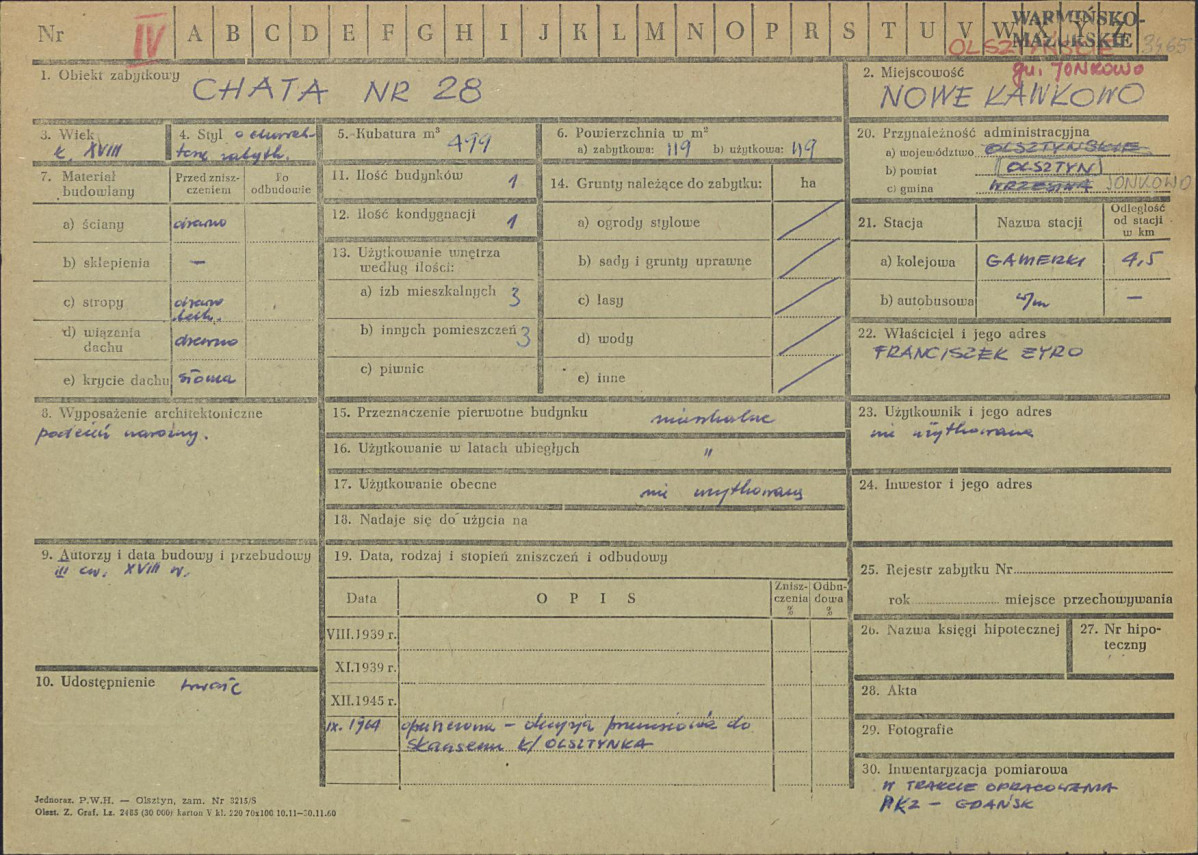 Nr IV A B C D E F G H I J K L M N O P R S T U V W Y Z
WARMIŃSKO-
MAZURSKIE
OLSZTYŃSKIE 3465
gm. JONKOWO
1. Obiekt zabytkowy
CHATA NR 28
2. Miejscowość
NOWE KAWKOWO
3. Wiek
k. XVIII
4. Styl o charak-
terze zabytk.
5. Kubatura m³ 499
6. Powierzchnia w m²
a) zabytkowa: 119 b) użytkowa: 119
7. Materiał budowlany
Przed znisz-
czeniem
Po
odbudowie
a) ściany drewno
b) sklepienia —
c) stropy drewno
belk.
d) wiązania
dachu drewno
e) krycie dachu słoma
8. Wyposażenie architektoniczne
podcień narożny.
9. Autorzy i data budowy i przebudowy
III ćw. XVIII w.
10. Udostępnienie
11. Ilość budynków 1
12. Ilość kondygnacji 1
13. Użytkowanie wnętrza
według ilości:
a) izb mieszkalnych 3
b) innych pomieszczeń 3
c) piwnic
14. Grunty należące do zabytku: ha
a) ogrody stylowe
b) sady i grunty uprawne
c) lasy
d) wody
e) inne
15. Przeznaczenie pierwotne budynku mieszkalne
16. Użytkowanie w latach ubiegłych "
17. Użytkowanie obecne nie użytkowana
18. Nadaje się do użycia na
19. Data, rodzaj i stopień zniszczeń i odbudowy
Data OPIS
Znisz-
czenia
%
Odbu-
dowa
%
VIII.1939 r.
XI.1939 r.
XII.1945 r.
IX. 1964 opuszczona – decyzja przenosiową do
Skansenu k/OLSZTYNKA
20. Przynależność administracyjna
a) województwo OLSZTYŃSKIE
b) powiat OLSZTYN
c) gmina WRZESINA JONKOWO
21. Stacja Nazwa stacji
Odległość
od stacji
w km
a) kolejowa GAMERKI 4,5
b) autobusowa w/m —
22. Właściciel i jego adres
FRANCISZEK EYRO
23. Użytkownik i jego adres
nie użytkowana
24. Inwestor i jego adres
25. Rejestr zabytku Nr
rok miejsce przechowywania
26. Nazwa księgi hipotecznej
27. Nr hipo-
teczny
28. Akta
29. Fotografie
30. Inwentaryzacja pomiarowa
W TRAKCIE OPRACOWANIA
PKZ – GDAŃSK
Jednoraz. P.W.H. — Olsztyn, zam. Nr 3215/S
Olszt. Z. Graf. Lz. 2485 (30 000) karton V kl. 220 70x100 10.11—30.11.60